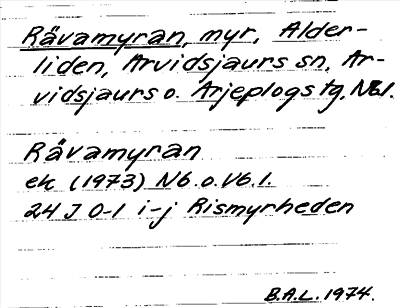 Råvamyran, myr, Alder-
liden, Arvidsjaurs sn, Ar-
vidsjaurs o. Arjeplogs tg, Nb l.
Råvamyran
ek (1973) Nb. o. Vb. l.
24 J 0-1 i-j Rismyrheden
B.A.L. 1974.